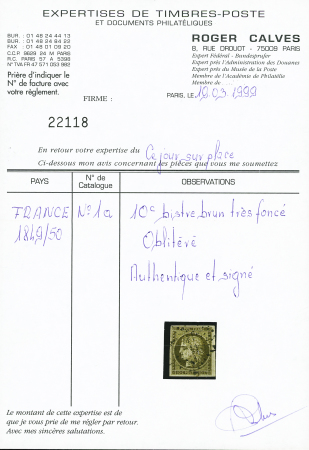 EXPERTISES DE TIMBRES-POSTE
ET DOCUMENTS PHILATÉLIQUES
BUR. 01 48 24 44 13
BUR. // 01 42 64 84 22
FAX : 01 48 01 09 20
C.C.P. 9629 24 M PARIS
R.C. PARIS 57 A 5398
N° TVA FR 47 571 053 982
Prière d'indiquer le
N° de facture avec
votre règlement.
ROGER CALVES
8, RUE DROUOT - 75009 PARIS
Expert Fédéral - Bundesprüfer
Expert près l'Administration des Douanes
Expert près du Musée de la Poste
Membre de l'Académie de Philatélie
Membre de
FIRME :
PARIS, le 19 03 1999
22118
En retour votre expertise du Ce jour sur place
Ci-dessous mon avis concernant les pièces que vous me soumettez
PAYS
N° de
Catalogue
OBSERVATIONS
FRANCE N° 1a 10c bistre brun très foncé
1849/50 Oblitéré
Authentique et signé
Le montant de cette expertise est de
que je vous prie de me régler par retour.
Avec mes sincères salutations.